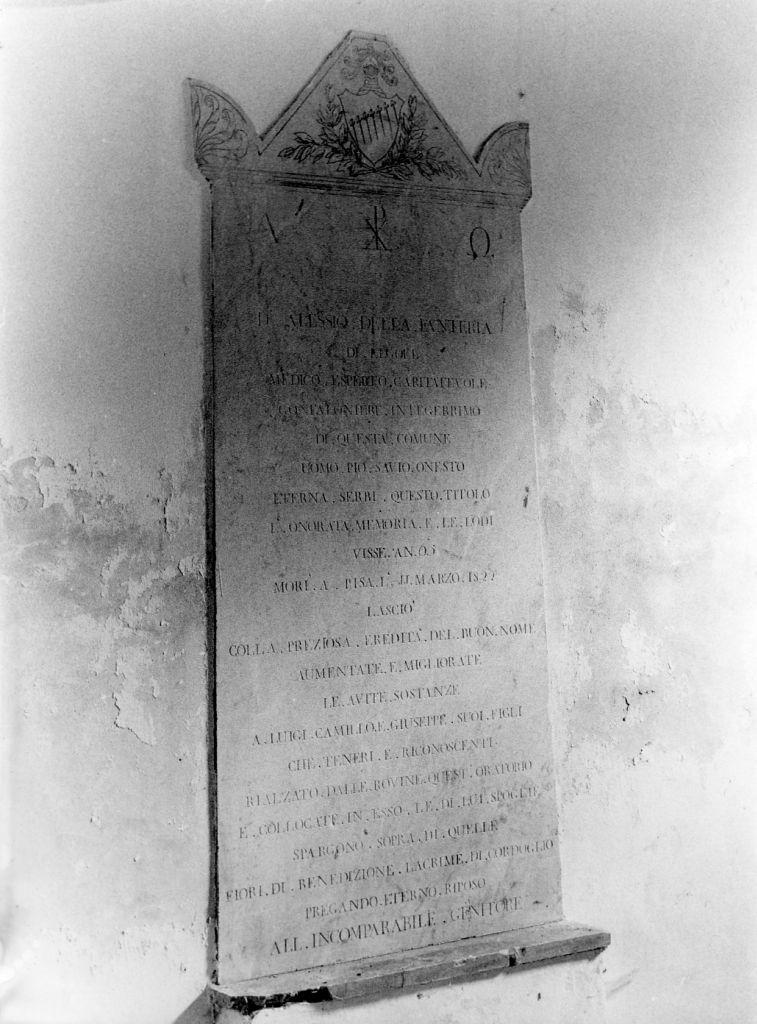 A ☧ Ω
D. ALESSIO . DELLA . FANTERIA
DI
MEDICO . ESPERTO . CARITATEVOLE
GONFALONIERE . INTEGERRIMO
DI . QUESTA . COMUNE
UOMO . PIO . SAVIO . ONESTO
ETERNA . SERBI . QUESTO . TITOLO
L' . ONORATA . MEMORIA . E . LE . LODI
VISSE . AN .
MORÌ . A . PISA . L' . 11 . MARZO . 1822
LASCIÒ
COLLA . PREZIOSA . EREDITÀ . DEL . BUON . NOME
AUMENTATE . E . MIGLIORATE
LE . AVITE . SOSTANZE
A . LUIGI . CAMILLO . E . GIUSEPPE . SUOI . FIGLI
CHE . TENERI . E . RICONOSCENTI
RIALZATO . DALLE . ROVINE . QUEST' . ORATORIO
E . COLLOCATE . IN . ESSO . LE . DI . LUI . SPOGLIE
SPARGONO . SOPRA . DI . QUELLE
FIORI . DI . BENEDIZIONE . LACRIME . DI . CORDOGLIO
PREGANDO . ETERNO . RIPOSO
ALL . INCOMPARABILE . GENITORE